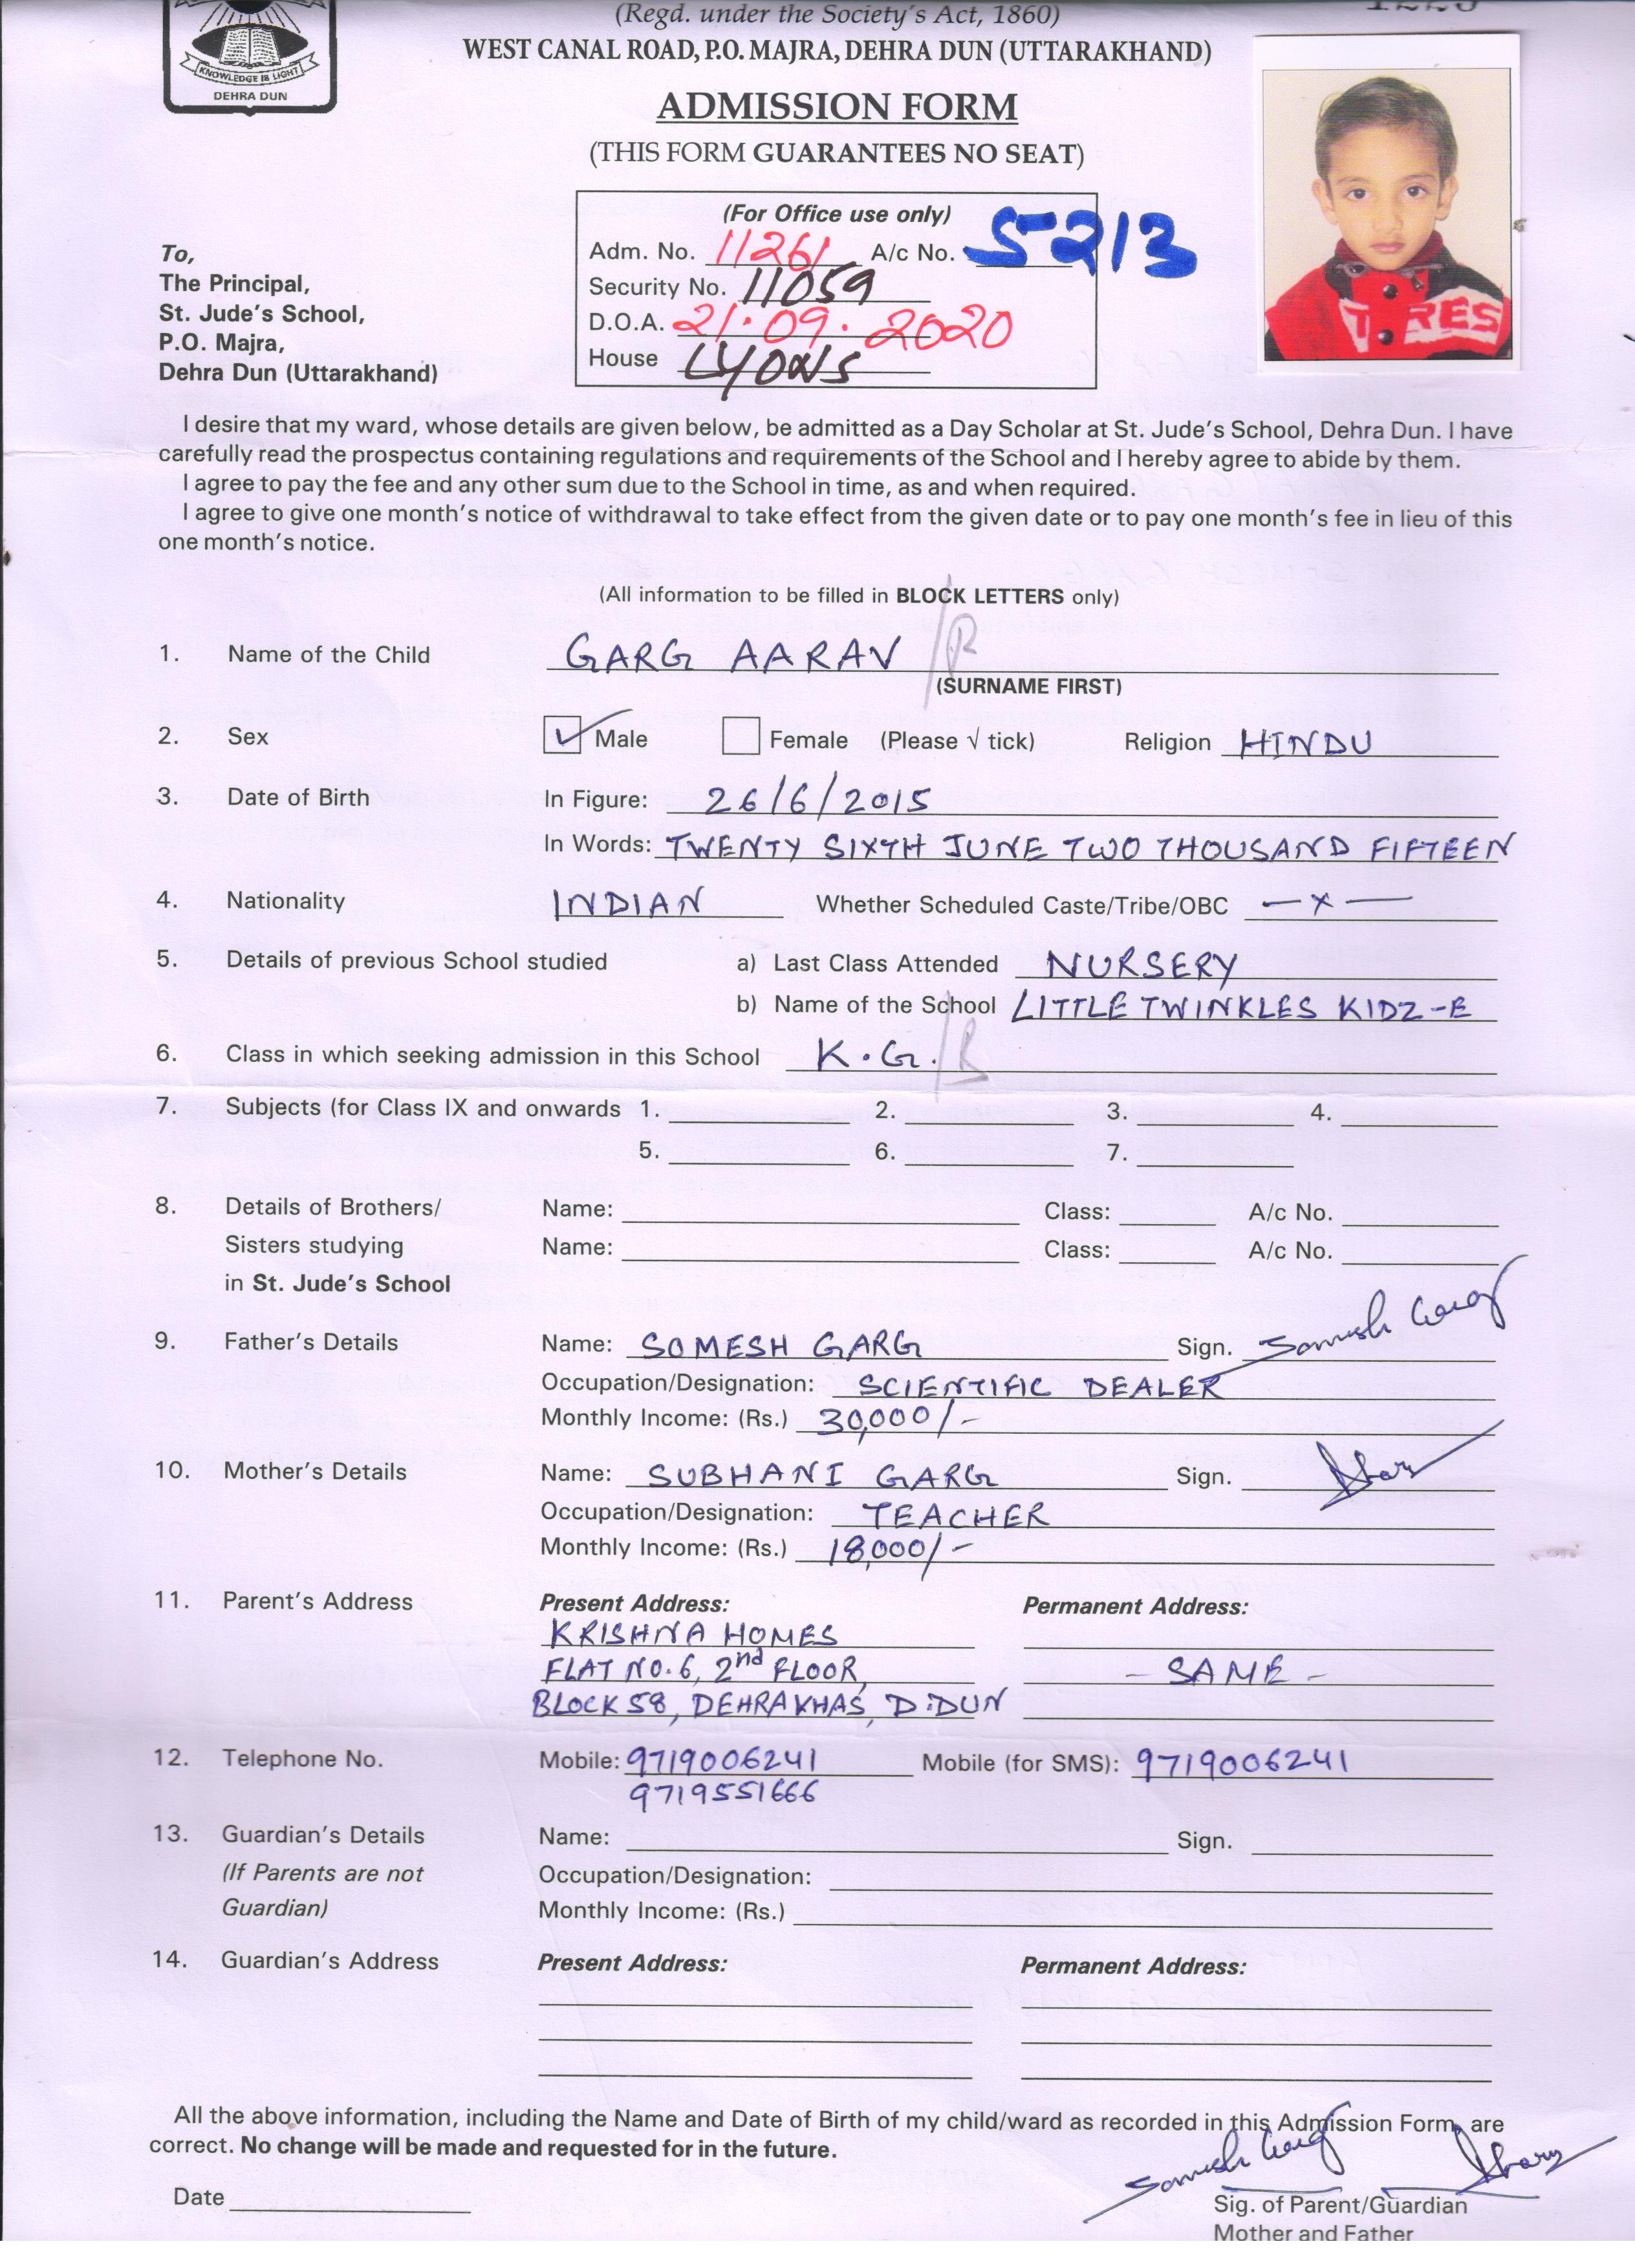 (Regd. under the Society's Act, 1860)
WEST CANAL ROAD, P.O. MAJRA, DEHRA DUN (UTTARAKHAND)
KNOWLEDGE IS LIGHT
DEHRA DUN
ADMISSION FORM
(THIS FORM GUARANTEES NO SEAT)
To,
The Principal,
St. Jude's School,
P.O. Majra,
Dehra Dun (Uttarakhand)
(For Office use only)
Adm. No. 11261 A/c No. 5213
Security No. 11059
D.O.A. 21.09.2020
House LYONS
TRES
I desire that my ward, whose details are given below, be admitted as a Day Scholar at St. Jude's School, Dehra Dun. I have
carefully read the prospectus containing regulations and requirements of the School and I hereby agree to abide by them.
I agree to pay the fee and any other sum due to the School in time, as and when required.
I agree to give one month's notice of withdrawal to take effect from the given date or to pay one month's fee in lieu of this
one month's notice.
(All information to be filled in BLOCK LETTERS only)
1. Name of the Child GARG AARAV
(SURNAME FIRST)
2. Sex Male Female (Please √ tick) Religion HINDU
3. Date of Birth In Figure: 26/6/2015
In Words: TWENTY SIXTH JUNE TWO THOUSAND FIFTEEN
4. Nationality INDIAN Whether Scheduled Caste/Tribe/OBC —x—
5. Details of previous School studied a) Last Class Attended NURSERY
b) Name of the School LITTLE TWINKLES KIDZ-E
6. Class in which seeking admission in this School K.G.
7. Subjects (for Class IX and onwards 1. 2. 3. 4.
5. 6. 7.
8. Details of Brothers/ Name: Class: A/c No.
Sisters studying Name: Class: A/c No.
in St. Jude's School
9. Father's Details Name: SOMESH GARG Sign. Somesh Garg
Occupation/Designation: SCIENTIFIC DEALER
Monthly Income: (Rs.) 30,000/-
10. Mother's Details Name: SUBHANI GARG Sign.
Occupation/Designation: TEACHER
Monthly Income: (Rs.) 18,000/-
11. Parent's Address Present Address: Permanent Address:
KRISHNA HOMES
FLAT NO. 6, 2nd FLOOR, - SAME -
BLOCK 58, DEHRAKHAS, D.DUN
12. Telephone No. Mobile: 9719006241 Mobile (for SMS): 9719006241
9719551666
13. Guardian's Details Name: Sign.
(If Parents are not Occupation/Designation:
Guardian) Monthly Income: (Rs.)
14. Guardian's Address Present Address: Permanent Address:
All the above information, including the Name and Date of Birth of my child/ward as recorded in this Admission Form, are
correct. No change will be made and requested for in the future.
Somesh Garg
Date Sig. of Parent/Guardian
Mother and Father